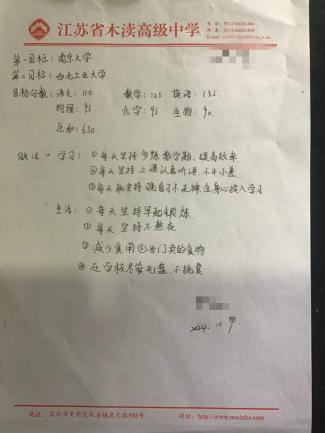 江苏省木渎高级中学
电 话: 0512-66261464
传 真: 0512-66261464
第一目标: 南京大学
第二目标: 西北工业大学
目标分数: 语文: 110 数学: 125 英语: 135
物理: 95 化学: 95 生物: 90
总和: 650
做法: 学习: ①每天坚持多练数学题, 提高效率
②每天坚持上课认真听讲, 不开小差
③每天能坚持晚自习不走神全身心投入学习
生活: ①每天坚持早起锻炼
②每天坚持不熬夜
③减少食用 门卖的食物
④在学校尽管光盘, 不挑食
2024.10
地址: 苏州市吴中区木渎镇灵天路598号 网站: http://www.muduhs.com